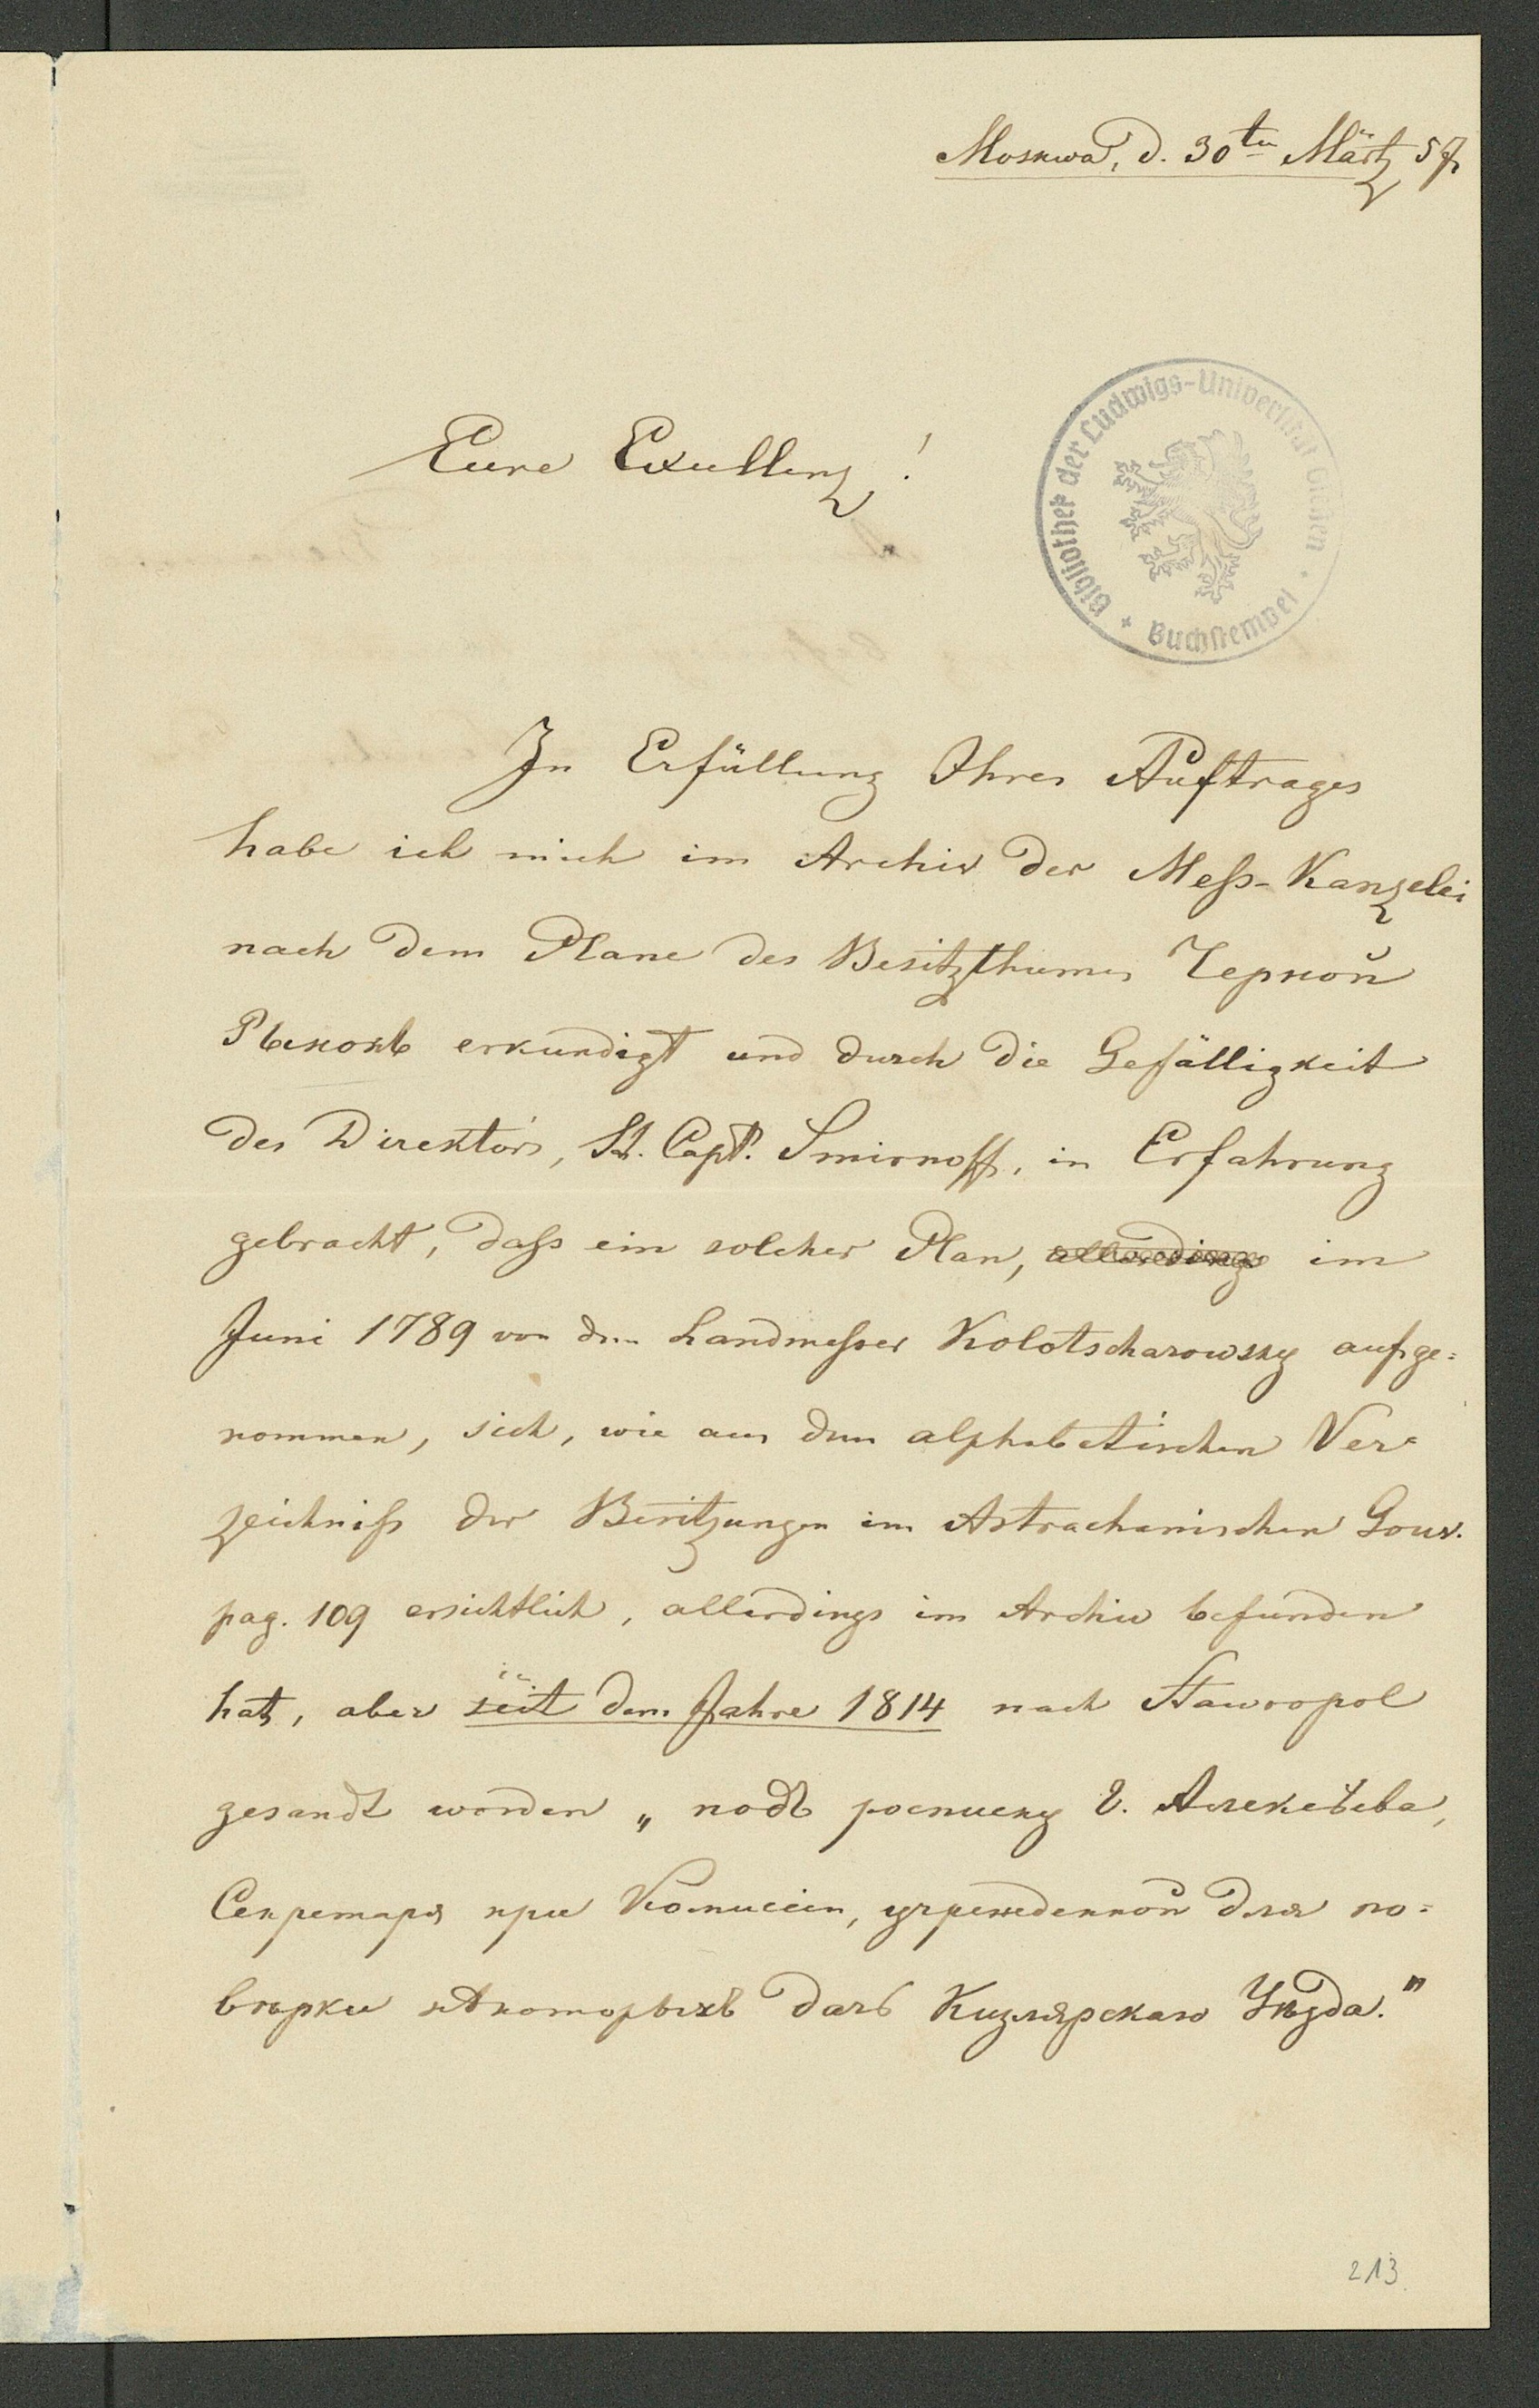 Moskwa, d. 30ten Märtz 57
Eure Excellenz!
Bibliothek der Ludwigs-Universität Gießen
Buchstempel
In Erfüllung Ihres Auftrages
habe ich mich im Archiv der Meß-Kanzelei
nach dem Plane des Besitzthumes Черной
Рынокъ erkundigt und durch die Gefälligkeit
des Direktors, St. Capt. Smirnoff, in Erfahrung
gebracht, daß ein solcher Plan, allerdings im
Juni 1789 von dem Landmeßer Kolotscharowsky aufge=
nommen, sich, wie aus dem alphabetischen Ver=
zeichniß der Besitzungen im Astrachanischen Gouv.
pag. 109 ersichtlich, allerdings im Archiv befunden
hat, aber seit dem Jahre 1814 nach Stawropol
gesandt worden „подъ росписку г. Алексѣева,
Секретаря при Комиссіи, учрежденной для по=
вѣрки нѣкоторыхъ дачъ Кизлярскаго Уѣзда."
213